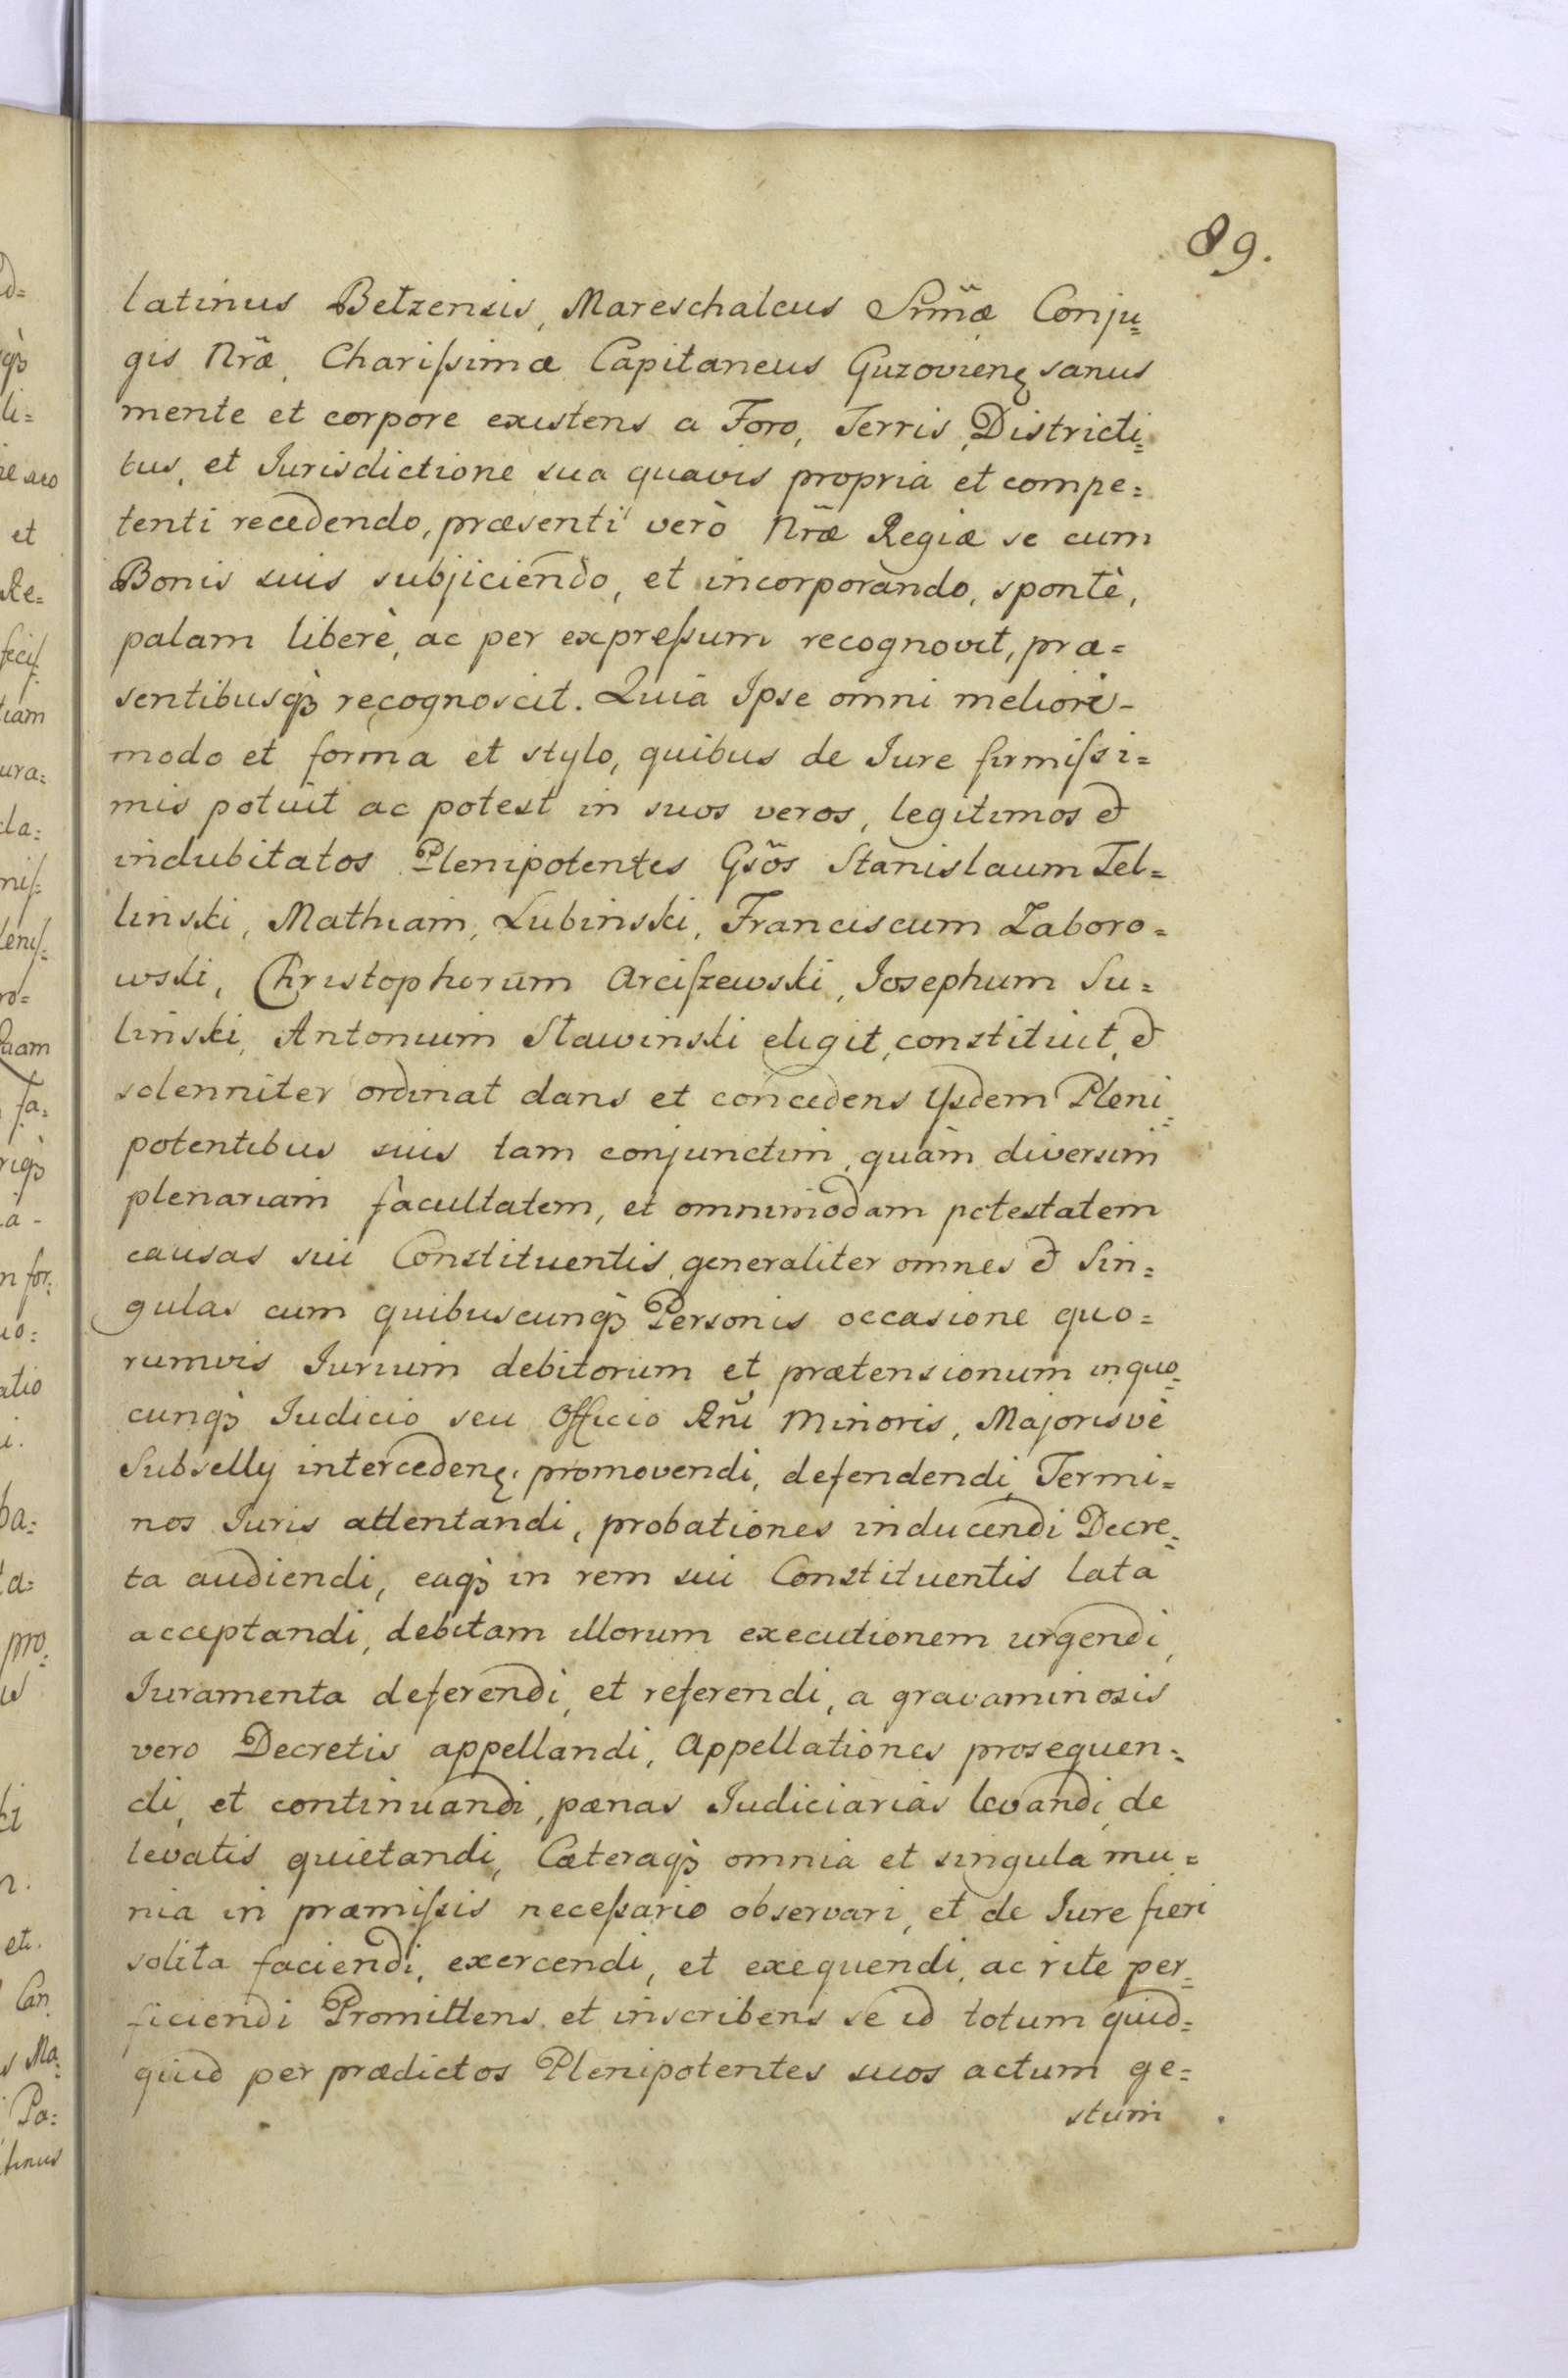 89.
latinus Betzensis, Mareschalcus Srm̃æ Conju=
gis Nrãæ, Charissimæ Capitaneus Guzoviens̨ sanus
mente et corpore existens a Foro, Terris, Districti=
bus, et Jurisdictione sua quavis propria et compe=
tenti recedendo, præsenti verò Nrãæ Regiæ se cum
Bonis suis subjiciendo, et incorporando, spontè,
palam liberè, ac per expressum recognovit, præ=
sentibusqꝫ recognoscit. Quia Ipse omni meliori-
modo et forma et stylo, quibus de Jure firmissi=
mis potuit ac potest in suos veros, legitimos et
indubitatos Plenipotentes Gsõs Stanislaum Tel=
linski, Mathiam, Lubinski, Franciscum Zaboro=
wski, Christophorum Arciszewski, Josephum Su=
linski, Antonium Stawinski eligit, constituit, et
solenniter ordinat dans et concedens ijsdem Pleni=
potentibus suis tam conjunctim, quàm diversim
plenariam facultatem, et omnimodam potestatem
causas sui Constituentis, generaliter omnes et Sin=
gulas cum quibuscunqꝫ Personis occasione quo=
rumvis Jurium debitorum et prætensionum in quo=
cunqꝫ Judicio seu Officio Rñi Minoris, Majorisvè
Subselly intercedenę. promovendi, defendendi, Termi=
nos Juris attentandi, probationes inducendi Decre=
ta audiendi, eaqꝫ in rem sui Constituentis lata
acceptandi, debitam illorum executionem urgendi,
Juramenta deferendi, et referendi, a gravaminosis
vero Decretis appellandi, Appellationes prosequen=
di, et continuandi, pænas Judiciarias levandi, de
levatis quietandi, Cæteraqꝫ omnia et singula mu=
nia in præmissis necessario observari, et de Jure fieri
solita faciendi, exercendi, et exequendi, ac rite per=
ficiendi Promittens, et inscribens se id totum quid=
quid per prædictos Plenipotentes suos actum ge=
stum